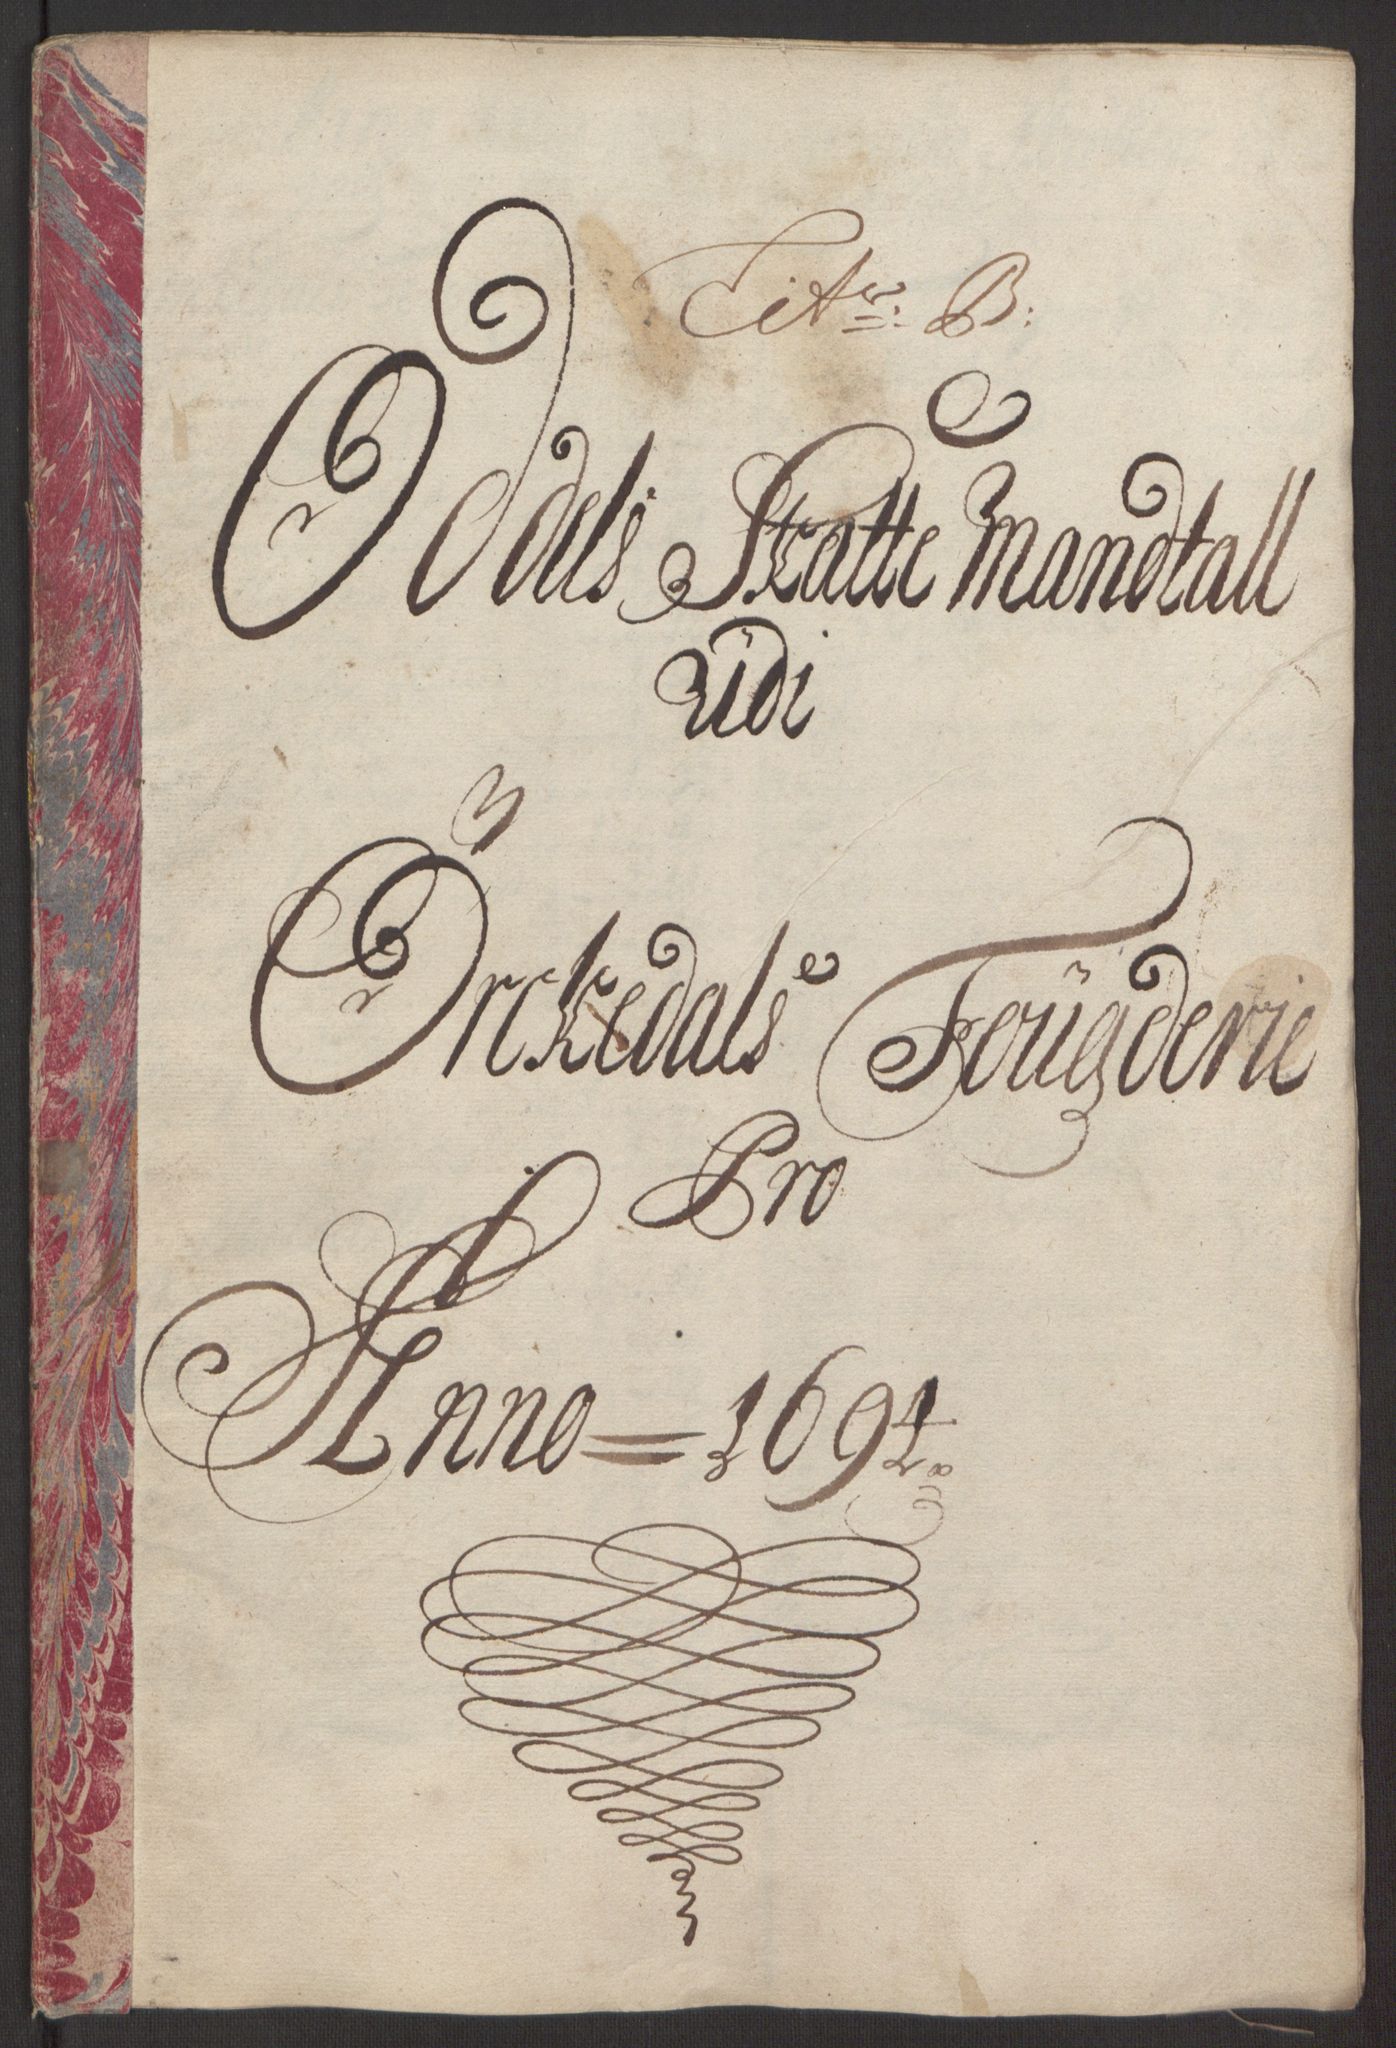 Litr: B:
Oddels Skatte Mandtall
Udi
Orckedals Fougderie
Pro
Anno = 1694